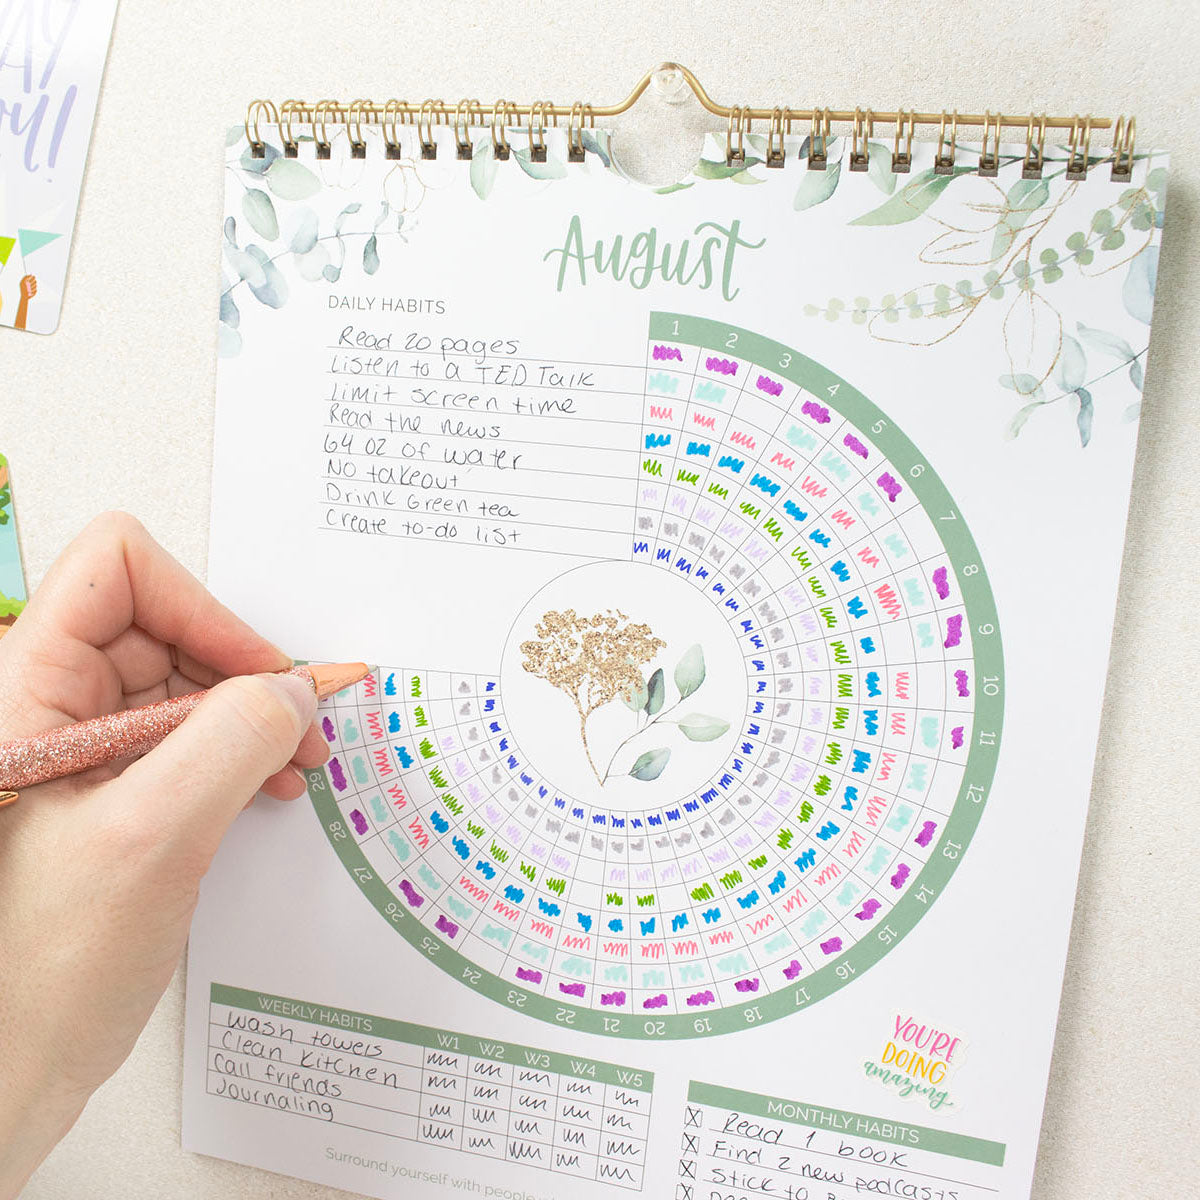 August
DAILY HABITS
Read 20 pages
Listen to a TED Talk
Limit screen time
Read the news
64 oz of water
No takeout
Drink Green tea
Create to-do list
1
2
3
4
5
6
7
8
9
10
11
12
13
14
15
16
17
18
19
20
21
22
22
23
24
25
26
27
28
29
WEEKLY HABITS W1 W2 W3 W4 W5
Wash towels
Clean Kitchen
Call friends
Journaling
Surround yourself with people
YOU'RE
DOING
amazing
MONTHLY HABITS
X Read 1 book
X Find 2 new podcasts
X Stick to